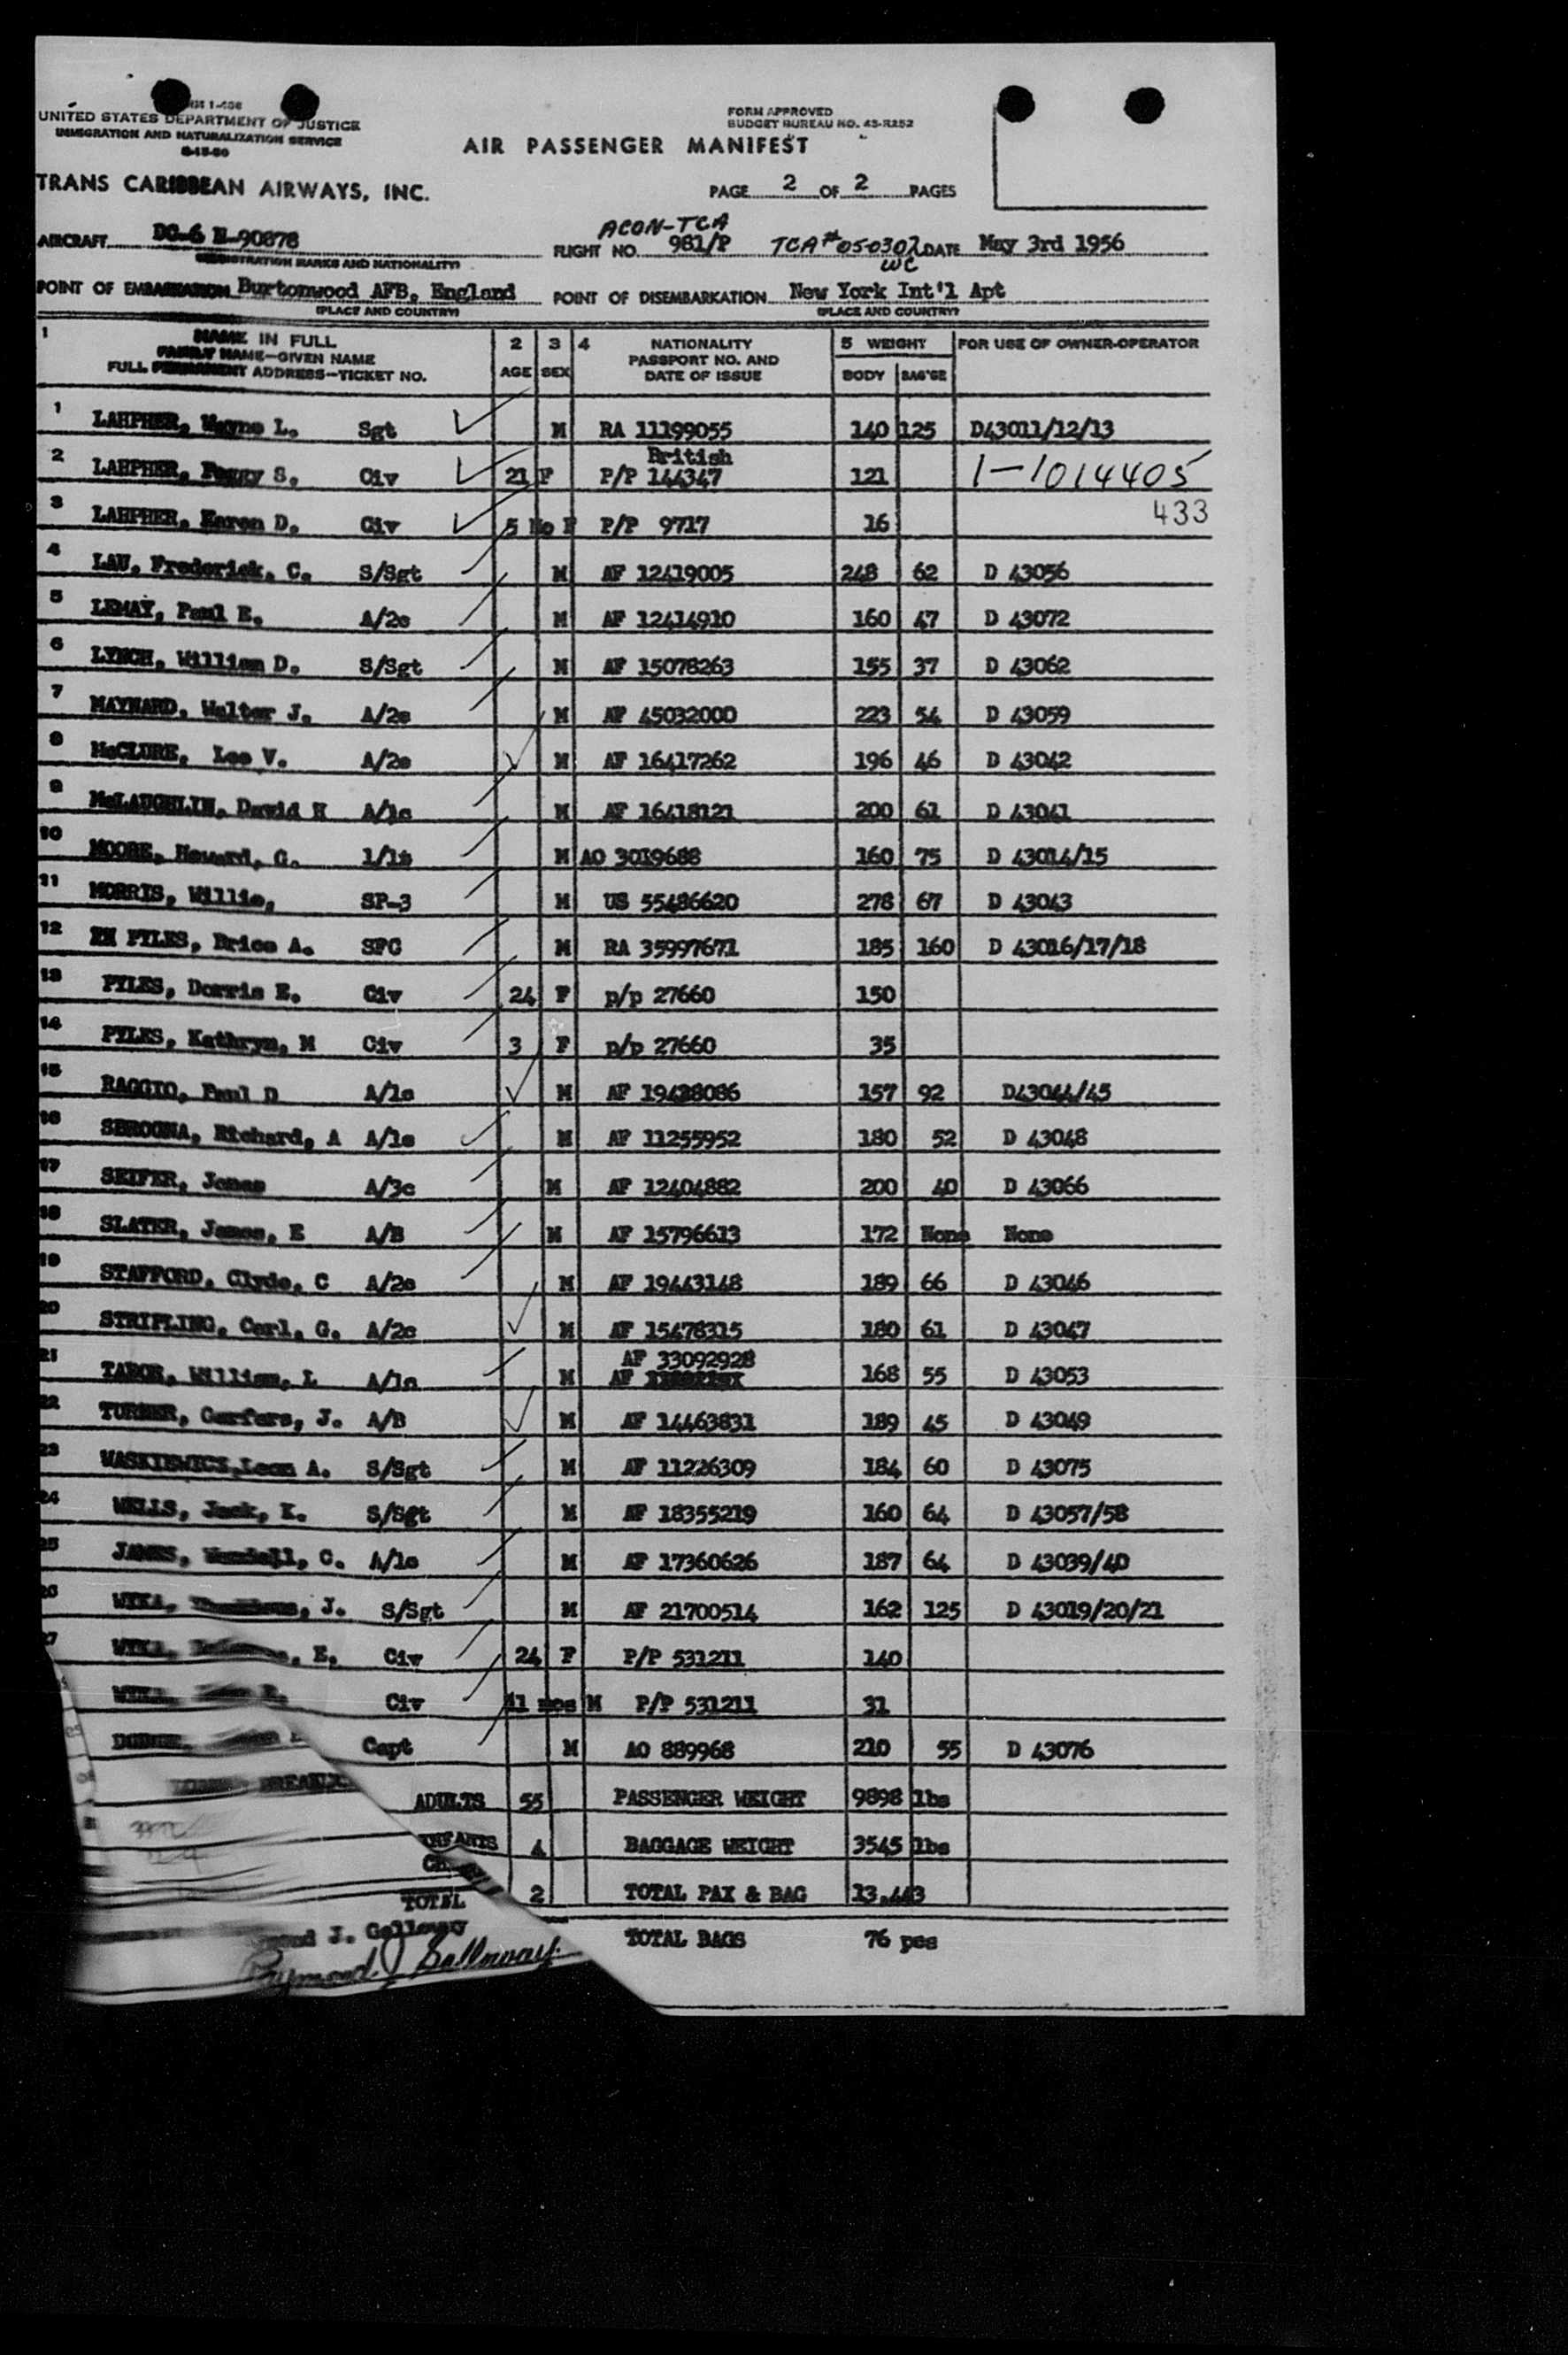 UNITED STATES DEPARTMENT OF JUSTICE
IMMIGRATION AND NATURALIZATION SERVICE
FORM APPROVED
BUDGET BUREAU NO. 43-R252
AIR PASSENGER MANIFEST
TRANS CARIBBEAN AIRWAYS, INC.
PAGE 2 OF 2 PAGES
ACON-TCA
AIRCRAFT DC-6 N-90878 FLIGHT NO. 981/P TCA# 05-0302 DATE May 3rd 1956
(REGISTRATION MARKS AND NATIONALITY) WC
POINT OF EMBARKATION Burtonwood AFB, England POINT OF DISEMBARKATION New York Int'l Apt
(PLACE AND COUNTRY) (PLACE AND COUNTRY)
1 NAME IN FULL 2 3 4 NATIONALITY 5 WEIGHT FOR USE OF OWNER-OPERATOR
FAMILY NAME—GIVEN NAME PASSPORT NO. AND
FULL PERMANENT ADDRESS—TICKET NO. AGE SEX DATE OF ISSUE BODY BAG'GE
1 LAHPHER, Wayne L. Sgt M RA 11199055 140 125 D43011/12/13
British
2 LAHPHER, Peggy S. Civ 21 F P/P 144347 121 1-1014405
3 LAHPHER, Karen D. Civ 5 Mo F P/P 9717 16 433
4 LAU, Frederick, C. S/Sgt M AF 12419005 248 62 D 43056
5 LEMAY, Paul E. A/2c M AF 12414910 160 47 D 43072
6 LYNCH, William D. S/Sgt M AF 15078263 155 37 D 43062
7 MAYNARD, Walter J. A/2c M AF 45032000 223 54 D 43059
8 McCLURE, Leo V. A/2c M AF 16417262 196 46 D 43042
9 McLAUGHLIN, David H A/1c M AF 16418121 200 61 D 43041
10 MOORE, Howard, G. 1/Lt M AO 3019688 160 75 D 43014/15
11 MORRIS, Willie, SP-3 M US 55486620 278 67 D 43043
12 PYLES, Brice A. SFC M RA 35997671 185 160 D 43016/17/18
13 PYLES, Dorris E. Civ 24 F p/p 27660 150
14 PYLES, Kathryn, M Civ 3 F p/p 27660 35
15 RAGGIO, Paul D A/1c M AF 19428086 157 92 D43044/45
16 SBROGNA, Richard, A A/1c M AF 11255952 180 52 D 43048
17 SEIFER, Jonas A/3c M AF 12404882 200 40 D 43066
18 SLATER, James, E A/B M AF 15796613 172 None None
19 STAFFORD, Clyde, C A/2c M AF 19443148 189 66 D 43046
20 STRIPLING, Carl, G. A/2c M AF 15478315 180 61 D 43047
AF 33092928
21 TABOR, William, L A/1c M AF 168 55 D 43053
22 TURNER, Carfers, J. A/B M AF 14463831 189 45 D 43049
23 WASKIEWICZ, Leon A. S/Sgt M AF 11226309 184 60 D 43075
24 WELLS, Jack, K. S/Sgt M AF 18355219 160 64 D 43057/58
25 JAMES, Wendell, C. A/1c M AF 17360626 187 64 D 43039/40
26 WYKA, J. S/Sgt M AF 21700514 162 125 D 43019/20/21
27 WYKA, E. Civ 24 F P/P 531211 140
Civ 11 mos M P/P 531211 31
Capt M AO 889968 210 55 D 43076
ADULTS 55 PASSENGER WEIGHT 9898 lbs
INFANTS 4 BAGGAGE WEIGHT 3545 lbs
TOTAL 2 TOTAL PAX & BAG 13,443
J. Galloway TOTAL BAGS 76 pcs
Raymond J Galloway